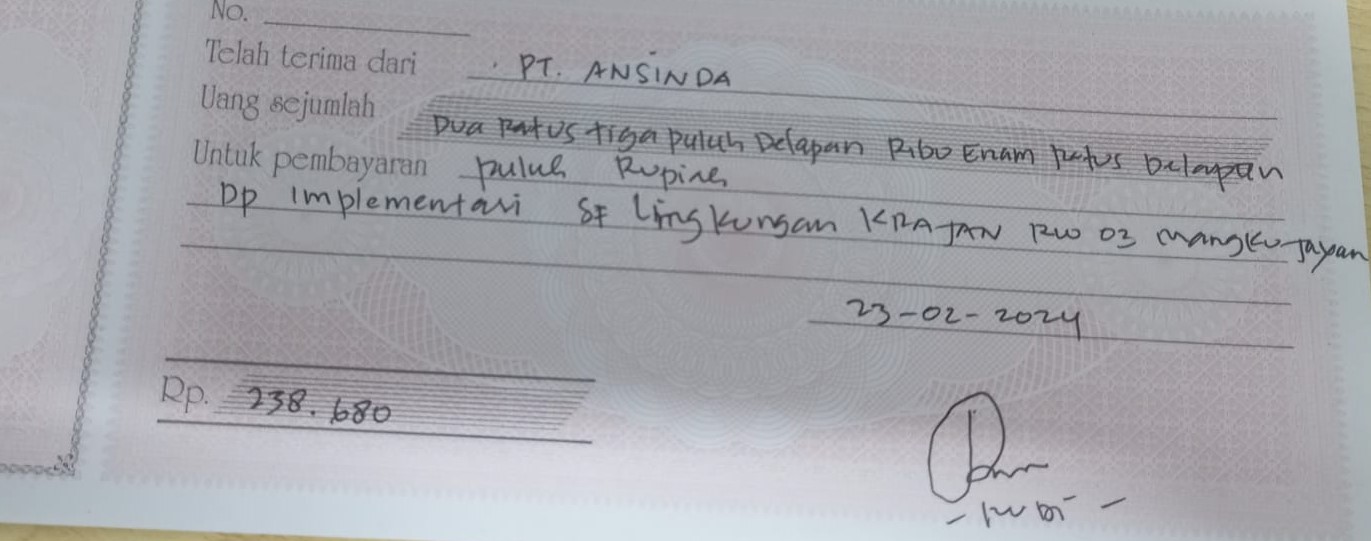 No.
Telah terima dari PT. ANSINDA
Uang sejumlah Dua Ratus tiga puluh Delapan Ribu Enam Ratus Delapan
Untuk pembayaran puluh Rupiah
Dp Implementasi SF Lingkungan KRAJAN RW 03 Mangkujayan
23-02-2024
Rp. 238.680